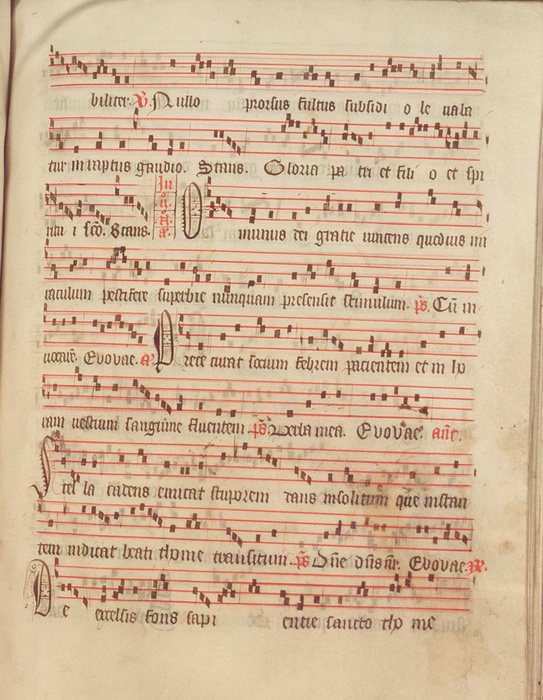 biliter. V. Nullo prorsus fultus subsidi o le vala
tur in raptus gaudio. Stans. Gloria pa tri et fili o et spi
ritu i sco. Stans. O munus dei gratie vincens quodvis mi
raculum pestifere superbie nunquam presensit stimulum. ps. Cū in
vocare. Evovae. a. P rece curat socium febrem pacientem et in ly
cam uestium sanguine fluentem. ps. Verba mea. Evovae. ant.
Stel la cadens emicat stuporem dans insolitum que instan
tem indicat beati thome transitum. ps. Dne dns nr. Evovae. R.
De excelsis fons sapi entie sancto tho me